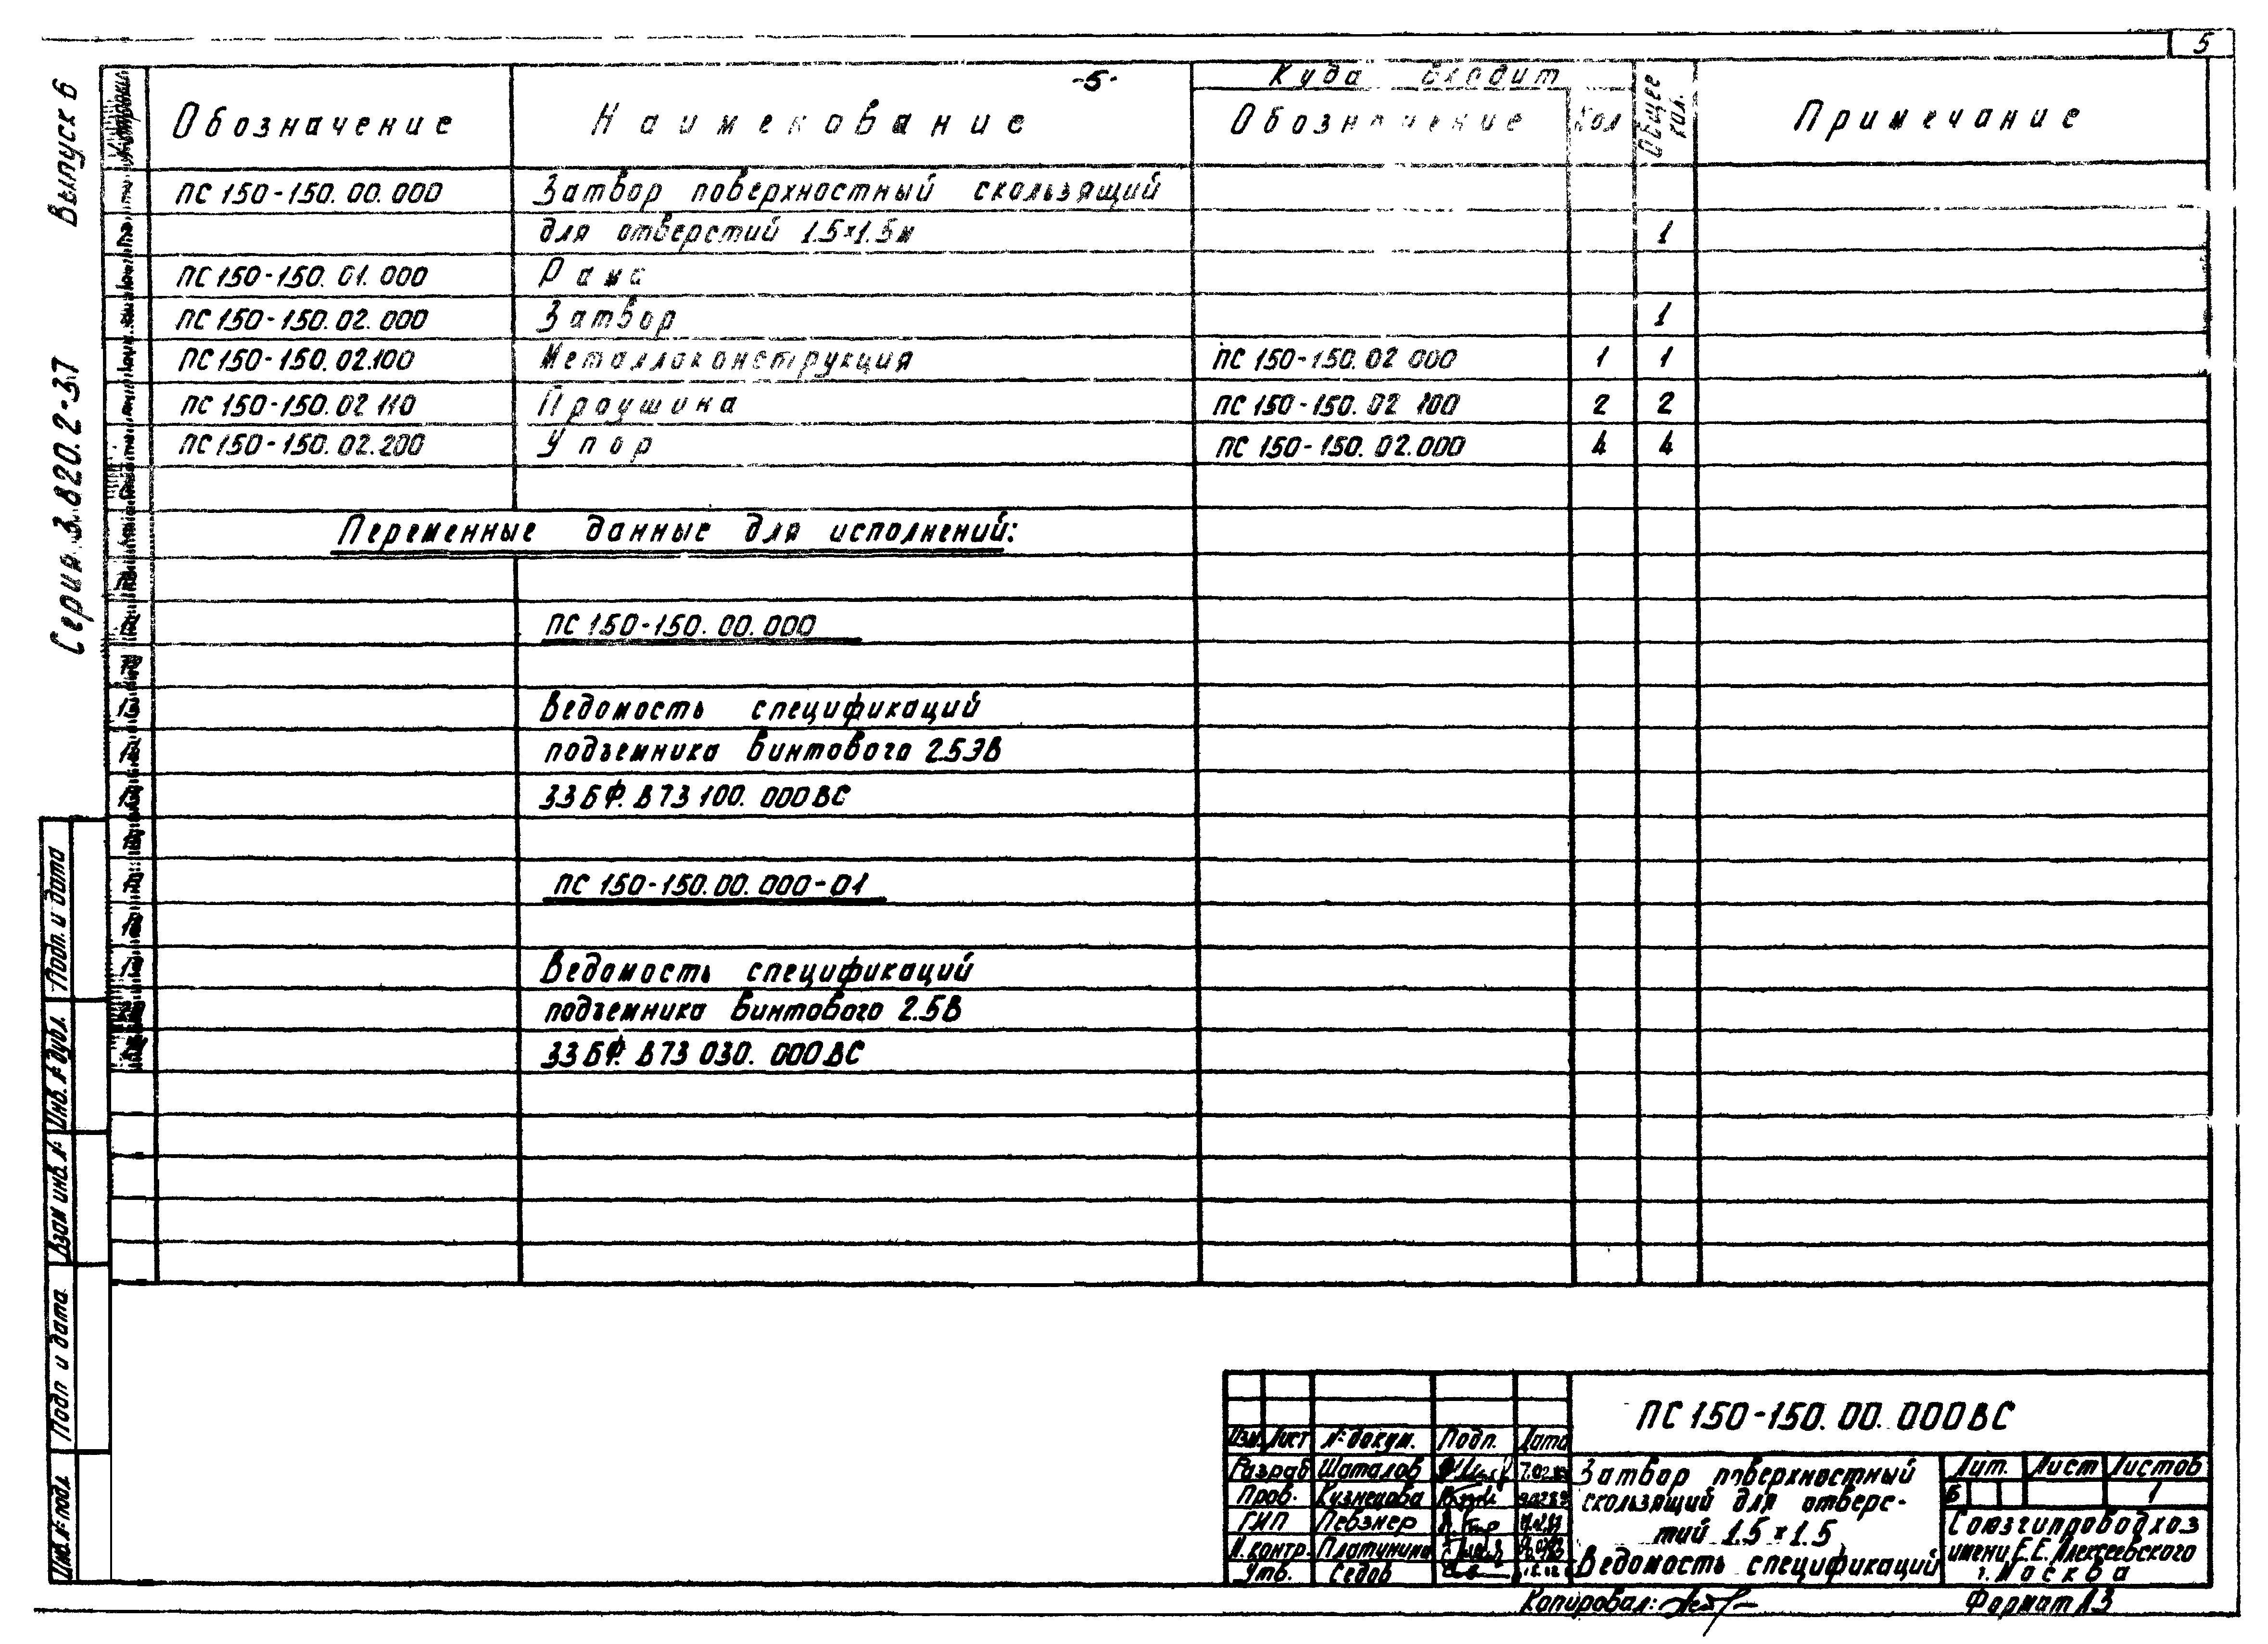 5
-5-
Выпуск 6
Серия 3.820.2-37
Обозначение
Наименование
Куда входит
Обозначение
Кол
Общее кол.
Примечание
ПС 150-150.00.000 Затвор поверхностный скользящий
для отверстий 1.5×1.5м 1
ПС 150-150.01.000 Рама
ПС 150-150.02.000 Затвор 1
ПС 150-150.02.100 Металлоконструкция ПС 150-150.02 000 1 1
ПС 150-150.02 110 Проушина ПС 150-150.02 100 2 2
ПС 150-150.02.200 Упор ПС 150-150.02.000 4 4
Переменные данные для исполнений:
ПС 150-150.00.000
Ведомость спецификаций
подъемника винтового 2.5ЭВ
33БФ.В73 100.000ВС
ПС 150-150.00.000-01
Ведомость спецификаций
подъемника винтового 2.5В
33БФ.В73 030.000ВС
Подп. и дата
Инв. № дубл.
Взам инв. №
Подп и дата
Инв. № подл.
ПС 150-150.00.000ВС
Изм. Лист № докум. Подп. Дата
Разраб Шаталов
Пров. Кузнецова
ГИП Певзнер
Н.контр. Платунина
Утв. Седов
Затвор поверхностный
скользящий для отверс-
тий 1.5×1.5
Ведомость спецификаций
Лит. Лист Листов
Б 1
Союзгипроводхоз
имени Е.Е. Алексеевского
г. Москва
Копировал:
Формат А3